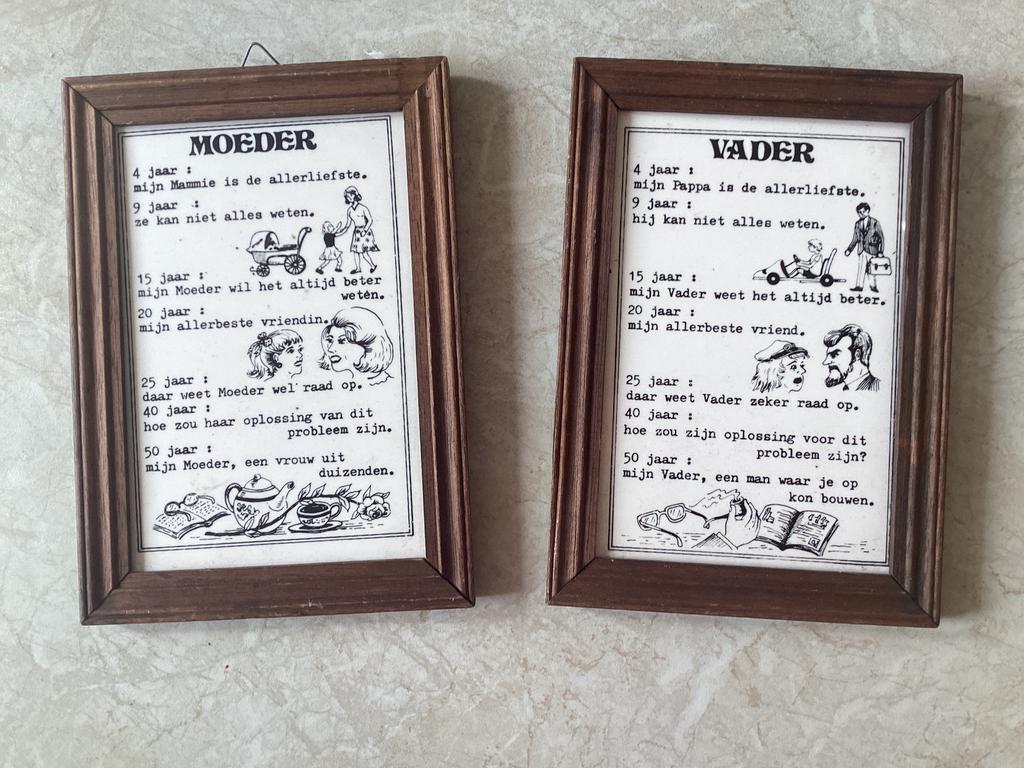 MOEDER
4 jaar :
mijn Mammie is de allerliefste.
9 jaar :
ze kan niet alles weten.
15 jaar :
mijn Moeder wil het altijd beter
weten.
20 jaar :
mijn allerbeste vriendin.
25 jaar :
daar weet Moeder wel raad op.
40 jaar :
hoe zou haar oplossing van dit
probleem zijn.
50 jaar :
mijn Moeder, een vrouw uit
duizenden.
VADER
4 jaar :
mijn Pappa is de allerliefste.
9 jaar :
hij kan niet alles weten.
15 jaar :
mijn Vader weet het altijd beter.
20 jaar :
mijn allerbeste vriend.
25 jaar :
daar weet Vader zeker raad op.
40 jaar :
hoe zou zijn oplossing voor dit
probleem zijn?
50 jaar :
mijn Vader, een man waar je op
kon bouwen.